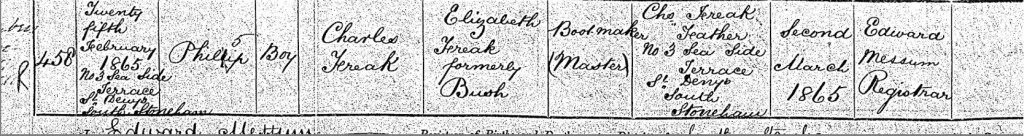 458
Twenty
fifth
February
1865
No 3 Sea Side
Terrace
St Denys
South Stoneham
Phillip
Boy
Charles
Freak
Elizabeth
Freak
formerly
Bush
Bootmaker
(Master)
Chs Freak
Father
No 3 Sea Side
Terrace
St Denys
South
Stoneham
Second
March
1865
Edward
Messum
Registrar
R
Edward Messum